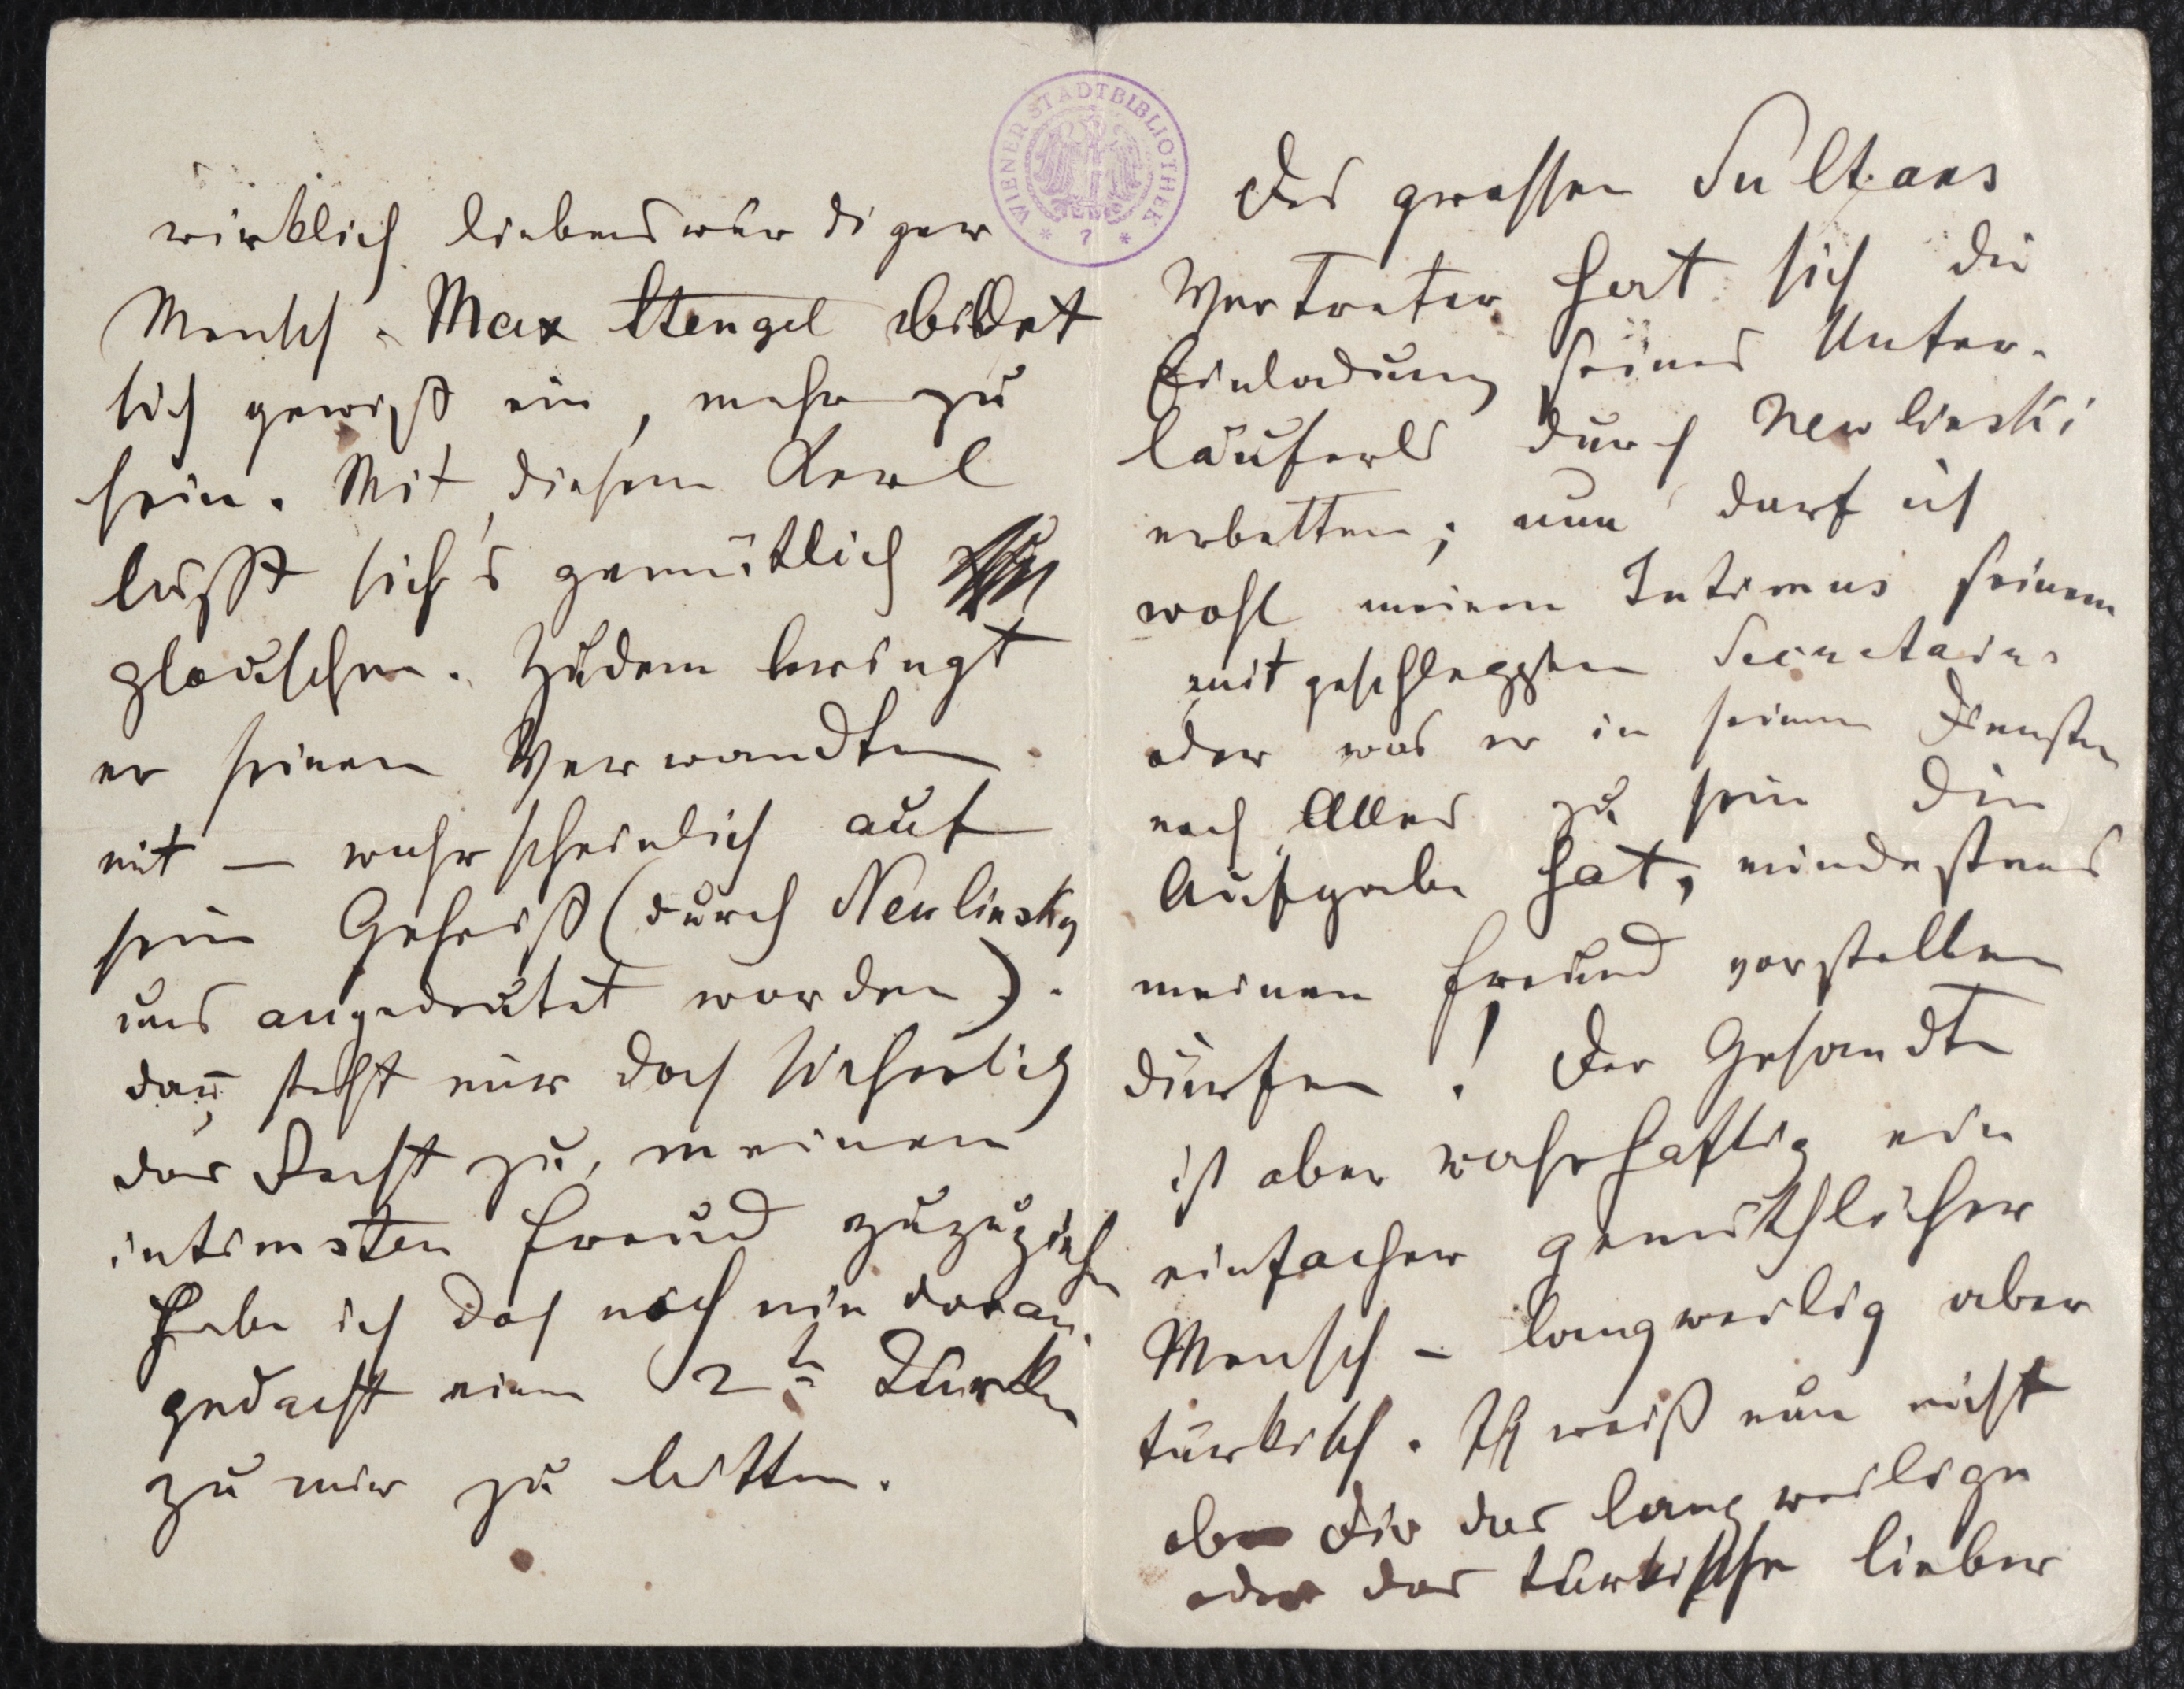 wirklich liebenswürdiger
Mensch. Max Stengel bildet
sich gewiß ein, mehr zu
sein. Mit diesem Kerl
lässt sich's gemütlich
plauschen. Zudem bringt
er seinen Verwandten
mit — wahrscheinlich auf
sein Geheiß (durch Newlinsky
uns angedeutet worden).
dañ steht mir doch sicherlich
das Recht zu, meinen
intimsten Freund zuzuziehn
habe ich doch noch nie daran
gedacht einen 2ten Türken
zu mir zu bitten.
WIENER STADTBIBLIOTHEK
* 7 *
Des grossen Sultans
Vertreter hat sich die
Einladung seines Unter-
läuferls durch Newlinski
erbetten; nun darf ich
wohl meinen Intimus seinem
mitgeschleppten Secretaire
oder was er in seinen Diensten
noch Alles zu sein die
Aufgabe hat, mindestens
meinen Freund vorstellen
dürfen! Der Gesandte
ist aber wahrhaftig ein
einfacher gemüthlicher
Mensch – langweilig aber
türkisch. Ich weiß nun nicht
ob Dir das langweilige
oder das türkische lieber